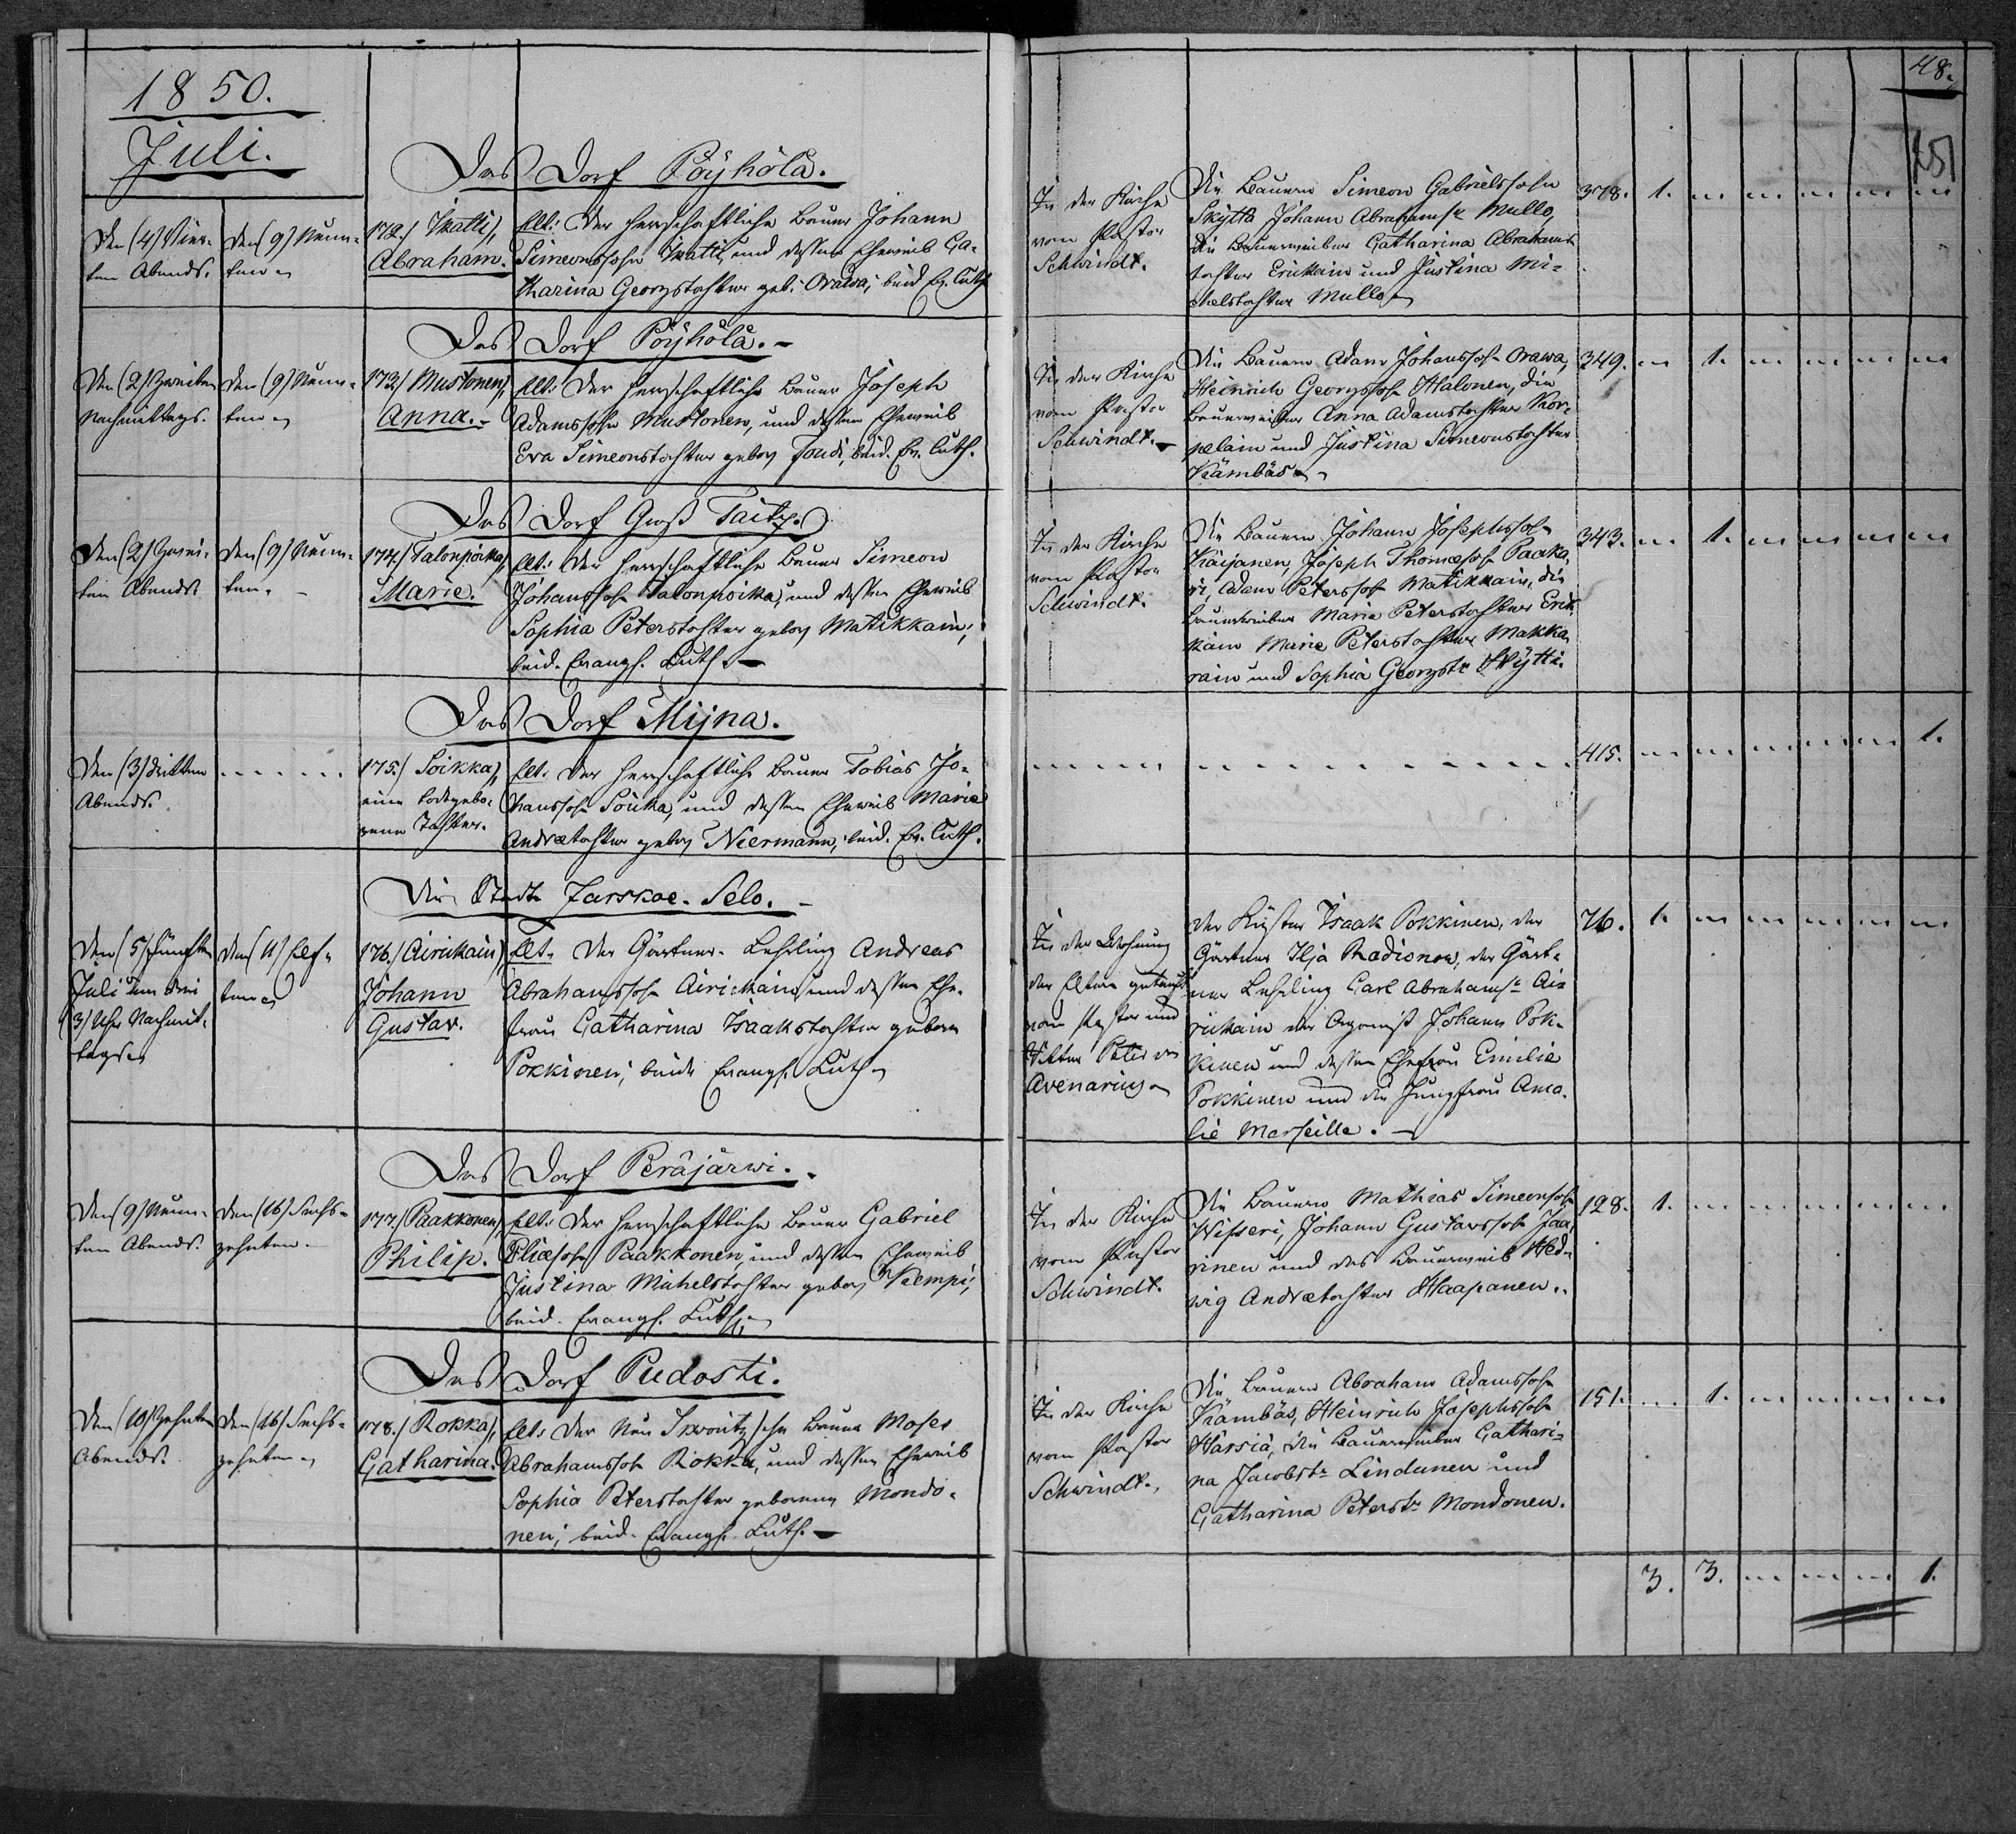 1850.
Juli.
Das Dorf Pöyhölä.
Den (4) Vier-
ten Abends.
Den (9) Neun-
ten
172.) Ikatti),
Abraham.
Elt: Der herrschaftliche Bauer Johann
Simeonssohn Ikatti, und dessen Eheweib Ca-
tharina Georgstochter geb. Orawa; beid. Ev. Luth.
In der Kirche
vom Pastor
Schwindt.
Die Bauern Simeon Gabrielssohn
Skyttä Johann Abrahamss. Mullo,
die Bauerweiber Catharina Abrahams-
tochter Erickain und Justina Mi-
chelstochter Mullo
378. 1.
48.
Das Dorf Pöyhölä.
Den (2) Zweiten
Nachmittags.
Den (9) Neun-
ten
173.) Mustonen),
Anna.
Elt: Der herrschaftliche Bauer Joseph
Adamssohn Mustonen, und dessen Eheweib
Eva Simeonstochter gebor. Toudi; beid. Ev. Luth.
In der Kirche
vom Pastor
Schwindt.
Die Bauern Adam Johanssoh. Orawa,
Heinrich Georgssoh. Halonen, die
Bauerweiber Anna Adamstochter Kor-
pelain und Justina Simeonstochter
Kämbäs
349. 1.
Das Dorf Groß Taitz.
Den (2) Zwei-
ten Abends
Den (9) Neun-
ten.
174.) Talonpoika),
Marie.
Elt: Der herrschaftliche Bauer Simeon
Johanssoh. Talonpoika, und dessen Eheweib
Sophia Peterstochter gebor. Matikkain;
beid. Evangl. Luth.
In der Kirche
vom Pastor
Schwindt.
Die Bauern Johann Josephssoh.
Käijanen, Joseph Thomassoh. Paaka-
ri, Adam Peterssoh. Matikkain, die
Bauerweiber Maria Peterstochter Erik-
käin Marie Peterstochter Makka-
rain und Sophia Georgstr. Skytti.
343. 1.
Das Dorf Mijna.
Den (3) Dritten
Abends.
175.) Soikka),
eine todtgebo-
rene Tochter.
Elt. Der herrschaftliche Bauer Tobias Jo-
hanssoh. Soikka, und dessen Eheweib Marie
Andreastochter gebor. Niermann; beid. Ev. Luth.
415. 1.
Die Stadt Zarskoe-Selo.
Den (5) Fünften
Juli um drei
3) Uhr Nachmit-
tags
Den (11) Elf-
ten
176.) Airikain),
Johann
Gustav.
Elt. Der Gärtner-Lehrling Andreas
Abrahamssoh. Airikain, und dessen Ehe-
frau Catharina Isaakstochter geboren
Pokkinen; beide Evangl. Luth.
In der Wohnung
der Eltern getauft
vom Pastor und
Ritter Peter v.
Avenarius
Der Küster Isaak Pokkinen, der
Gärtner Ilja Radionow, der Gärt-
ner Lehrling Carl Abrahamss. Ai-
rikain der Organist Johann Pok-
kinen und dessen Ehefrau Emilie
Pokkinen und die Jungfrau Ama-
lie Marseille.
76. 1.
Das Dorf Peräjärwi.
Den (9) Neun-
ten Abends.
Den (16) Sechs-
zehnten.
177.) Paakkonen),
Philip.
Elt: Der herrschaftliche Bauer Gabriel
Eliassoh. Paakkonen, und dessen Eheweib
Justina Michelstochter gebor. Kempi;
beid. Evangl. Luth.
In der Kirche
vom Pastor
Schwindt.
Die Bauern Mathias Simeonssoh.
Wisseri, Johann Gustavssoh. Jää-
rinen und das Bauerweib Hed-
wig Andreastochter Haapanen.
128. 1.
Das Dorf Pudosti.
Den (10) Zehnten
Abends.
Den (16) Sechs-
zehnten
178.) Rokka),
Catharina.
Elt. Der Neu Skworitzsche Bauer Moses
Abrahamssoh. Rokka, und dessen Eheweib
Sophia Peterstochter geborenen Mondo-
nen; beid. Evangl. Luth.
In der Kirche
vom Pastor
Schwindt.
Die Bauern Abraham Adamssoh.
Kämbäs, Heinrich Josephssoh.
Härsiä, die Bauerweiber Cathari-
na Jacobstr. Lindanen und
Catharina Peterstr. Mondonen.
151. 1.
3. 3. 1.